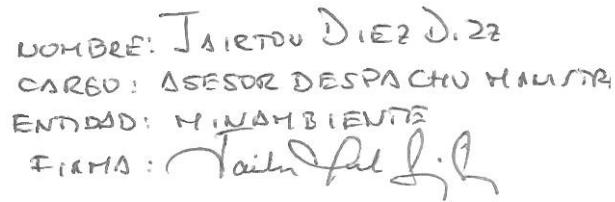 NOMBRE: JAIRTON DIEZ DIZZ
CARGO: ASESOR DESPACHO MINISTR
ENTIDAD: MINAMBIENTE
FIRMA: